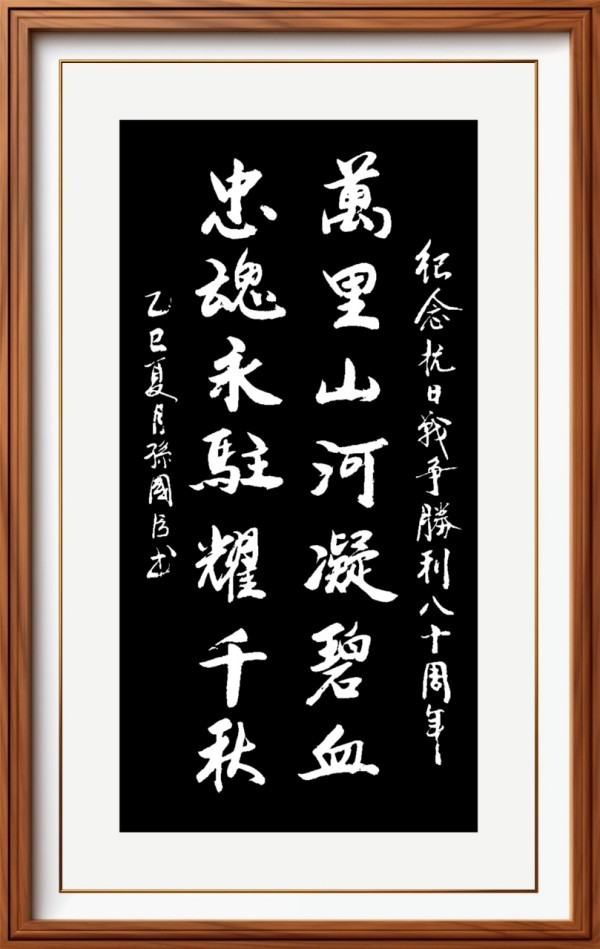 紀念抗日戰争勝利八十周年
萬里山河凝碧血
忠魂永駐耀千秋
乙巳夏月孫國房书